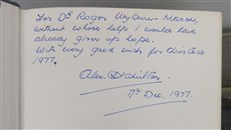 For Dr Roger Wyburn-Mason,
without whose help I would have
already given up hope.
With very good wish for Christmas
1977.
Alex. B. Hamilton.
17th Dec. 1977.